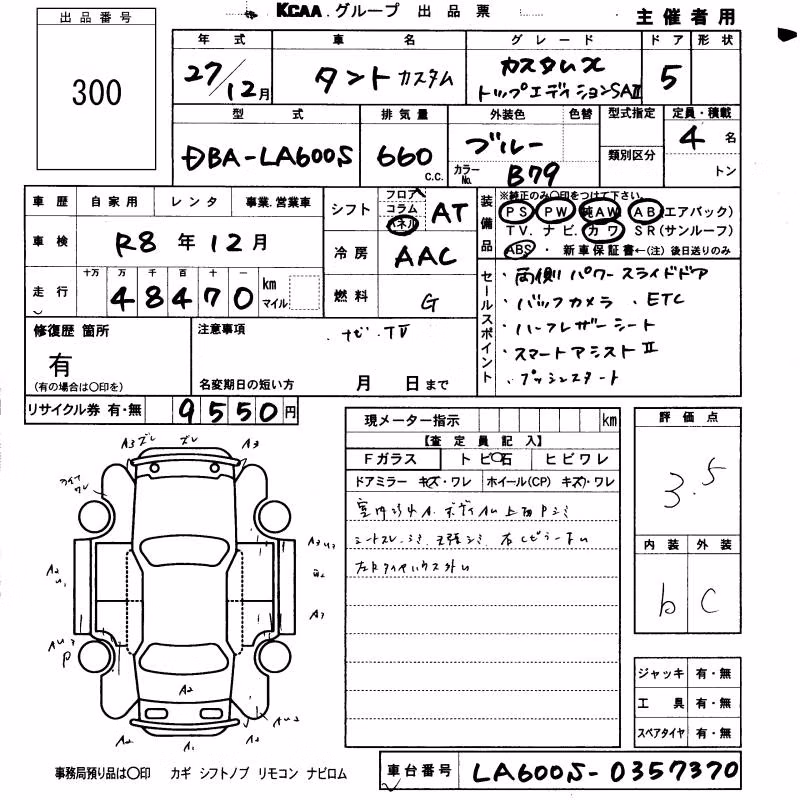 KCAA グループ 出品票
主催者用
出品番号
300
年式 車名 グレード ドア 形状
27/12月 タント カスタム カスタムX トップエディションSAⅡ 5
型式 排気量 外装色 色替 型式指定 定員・積載
DBA-LA600S 660 c.c. ブルー カラーNo. B79 類別区分 4名 トン
車歴 自家用 レンタ 事業.営業車
車検 R8年12月
走行 十万 万 千 百 十 一 48470 km マイル
シフト フロア コラム パネル AT
冷房 AAC
燃料 G
装備品
※純正のみ○印をつけて下さい。
PS PW 純AW AB(エアバック)
TV. ナビ. カワ SR(サンルーフ)
ABS ・ 新車保証書←(注) 後日送りのみ
セールスポイント
・両側パワースライドドア
・バックカメラ . ETC
・ハーフレザーシート
・スマートアシストⅡ
・プッシュスタート
修復歴 箇所
有
(有の場合は○印を)
注意事項
・ナビ・TV
名変期日の短い方 月 日まで
リサイクル券 有・無 9550円
現メーター指示 km
【査定員記入】
Fガラス トビ石 ヒビワレ
ドアミラー キズ・ワレ ホイール(CP) キズ・ワレ
評価点
3.5
内装 外装
b C
ジャッキ 有・無
工具 有・無
スペアタイヤ 有・無
A3 ズレ ズレ A3
A2
A2
A2
A1
P
事務局預り品は○印 カギ シフトノブ リモコン ナビロム
車台番号 LA600S-0357370